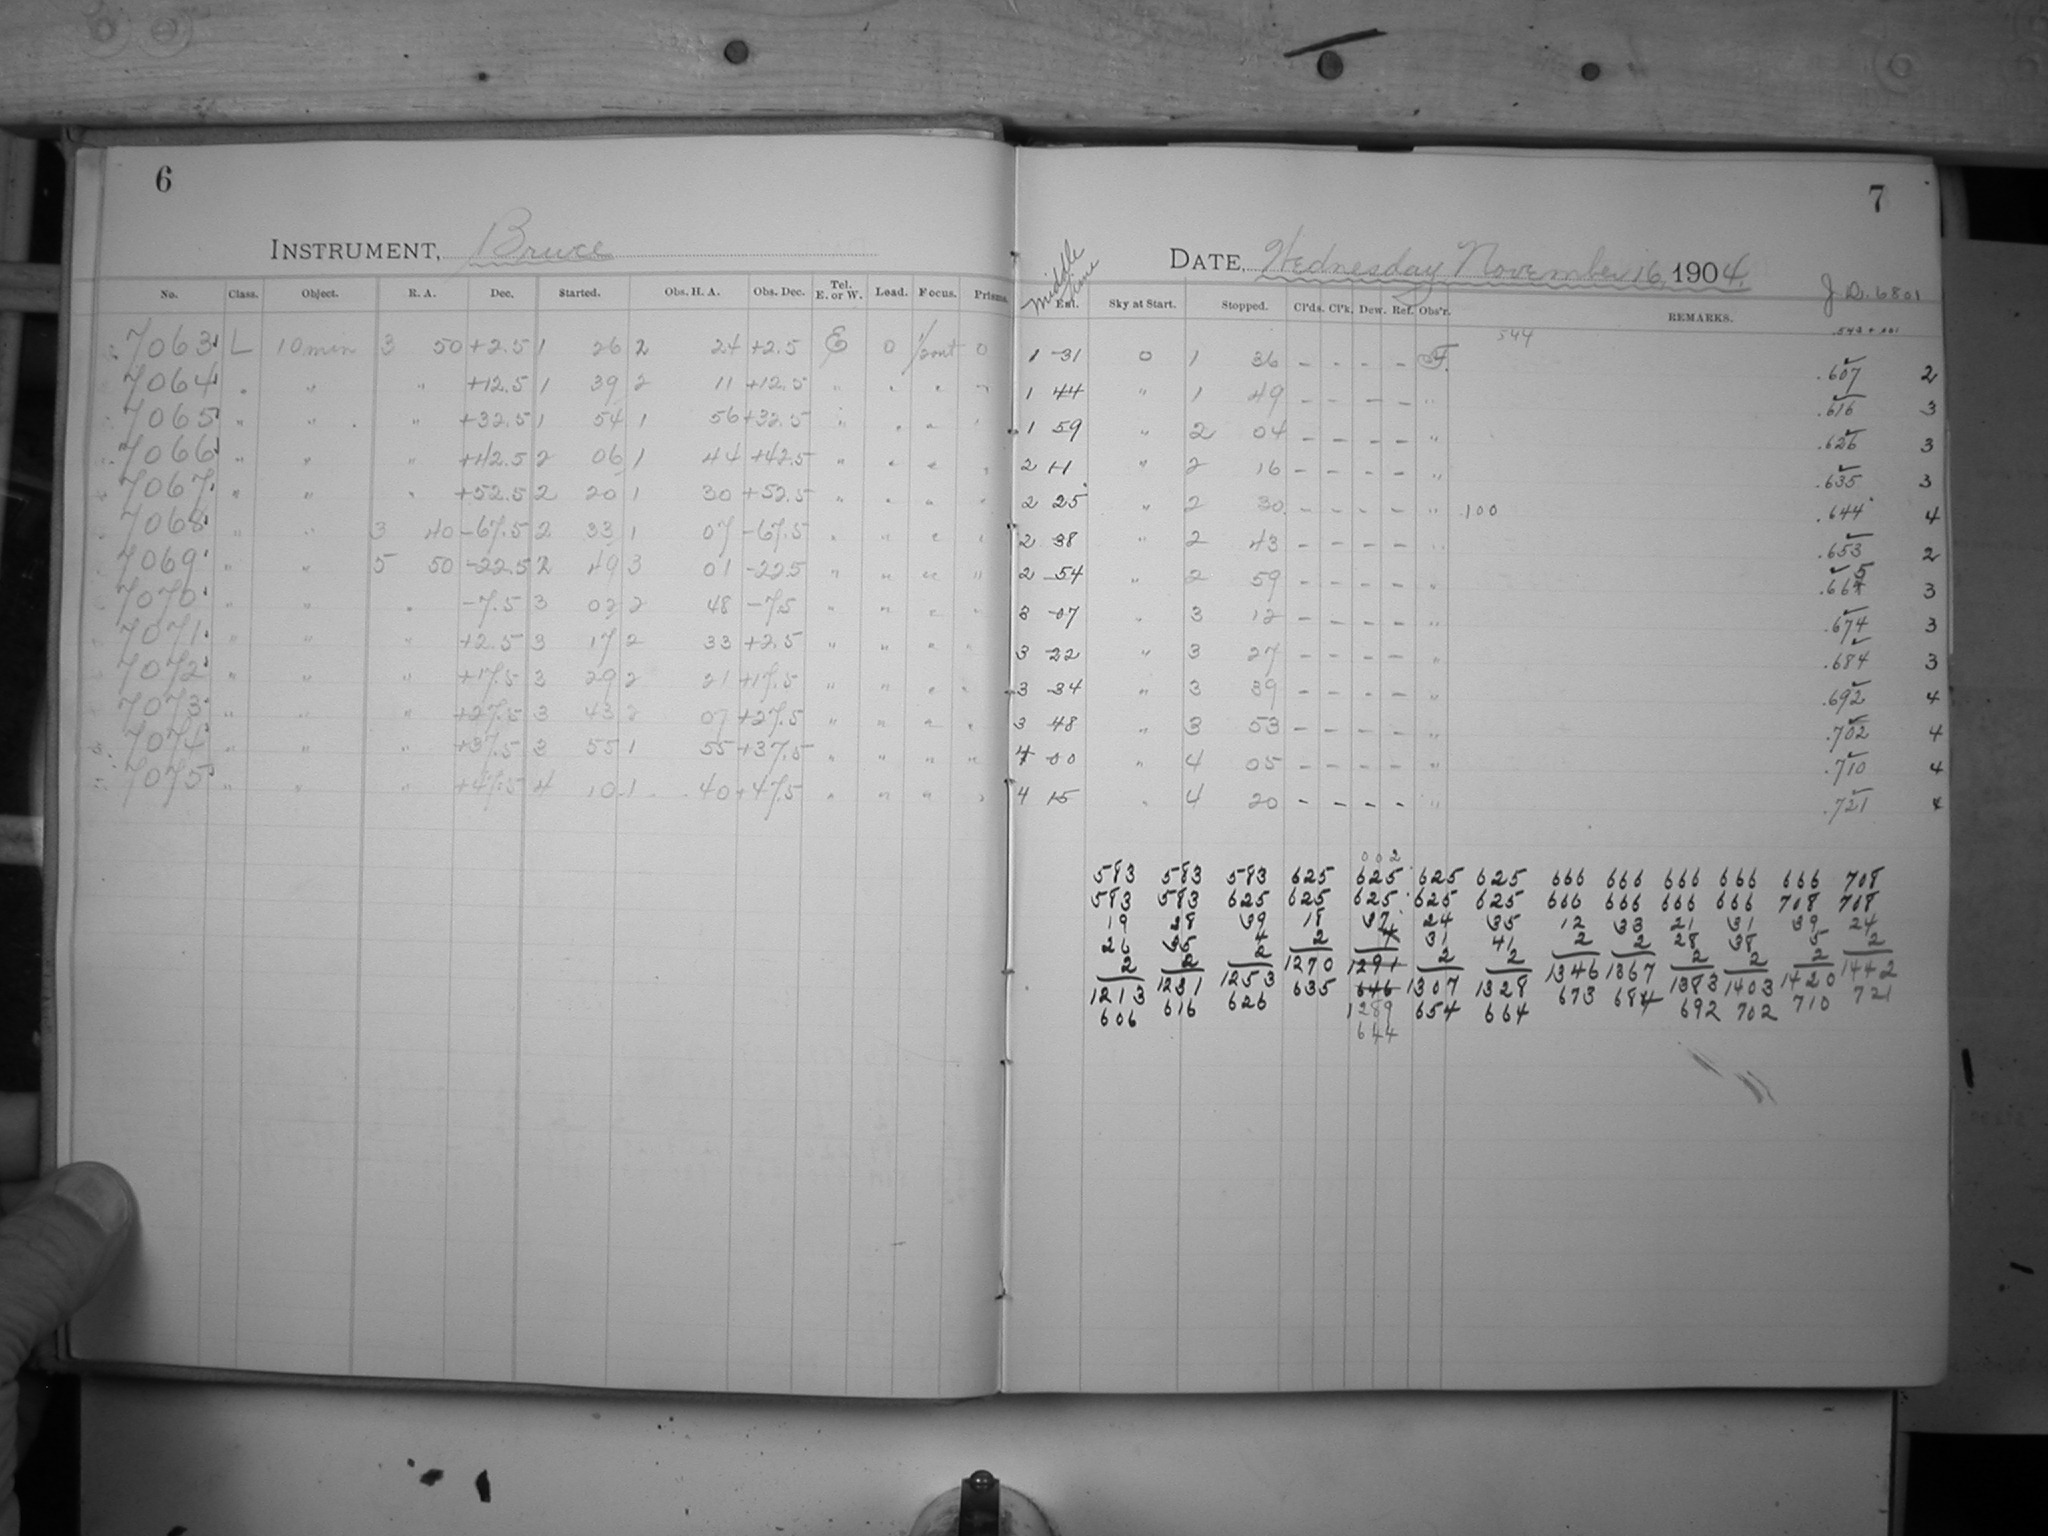 6
INSTRUMENT, Bruce
No. Class. Object. R. A. Dec. Started. Obs. H. A. Obs. Dec. Tel. E. or W. Load. Focus. Prisms.
7063 L 10 min 3 50 +2.5 1 26 2 24 +2.5 E 0 0
7064 " " " +12.5 1 39 2 11 +12.5 " " " "
7065 " " " +32.5 1 54 1 56 +32.5 " " " "
7066 " " " +42.5 2 06 1 44 +42.5 " " " "
7067 " " " +52.5 2 20 1 30 +52.5 " " " "
7068 " " 3 40 -67.5 2 33 1 07 -67.5 " " " "
7069 " " 5 50 -22.5 2 49 3 01 -22.5 " " " "
7070 " " " -7.5 3 02 2 48 -7.5 " " " "
7071 " " " +2.5 3 17 2 33 +2.5 " " " "
7072 " " " +17.5 3 29 2 21 +17.5 " " " "
7073 " " " +27.5 3 43 2 07 +27.5 " " " "
7074 " " " +37.5 3 55 1 55 +37.5 " " " "
7075 " " " +47.5 4 10 1 40 +47.5 " " " "
7
DATE, Wednesday November 16, 1904.
J D. 6801
middle time
Ent. Sky at Start. Stopped. Cl'ds. Cl'k. Dew. Ref. Obs'r. REMARKS.
544
1 31 0 1 36 - - - - F. .607 2
1 44 " 1 49 - - - - " .616 3
1 59 " 2 04 - - - - " .626 3
2 11 " 2 16 - - - - " .635 3
2 25 " 2 30 - - - - " .100 .644 4
2 38 " 2 43 - - - - " .653 2
2 54 " 2 59 - - - - " .665 3
3 07 " 3 12 - - - - " .674 3
3 22 " 3 27 - - - - " .684 3
3 34 " 3 39 - - - - " .692 4
3 48 " 3 53 - - - - " .702 4
4 00 " 4 05 - - - - " .710 4
4 15 " 4 20 - - - - " .721 4
002
583 583 583 625 625 625 625 666 666 666 666 666 708
583 583 625 625 625 625 625 666 666 666 666 708 708
19 28 39 18 37 24 35 12 33 21 31 39 24
26 35 4 2 4 31 41 2 2 28 38 5 2
2 2 2 1270 1291 2 2 1346 1367 2 2 2 1442
1213 1231 1253 635 646 1307 1328 673 684 1383 1403 1420 721
606 616 626 1289 654 664 692 702 710
644